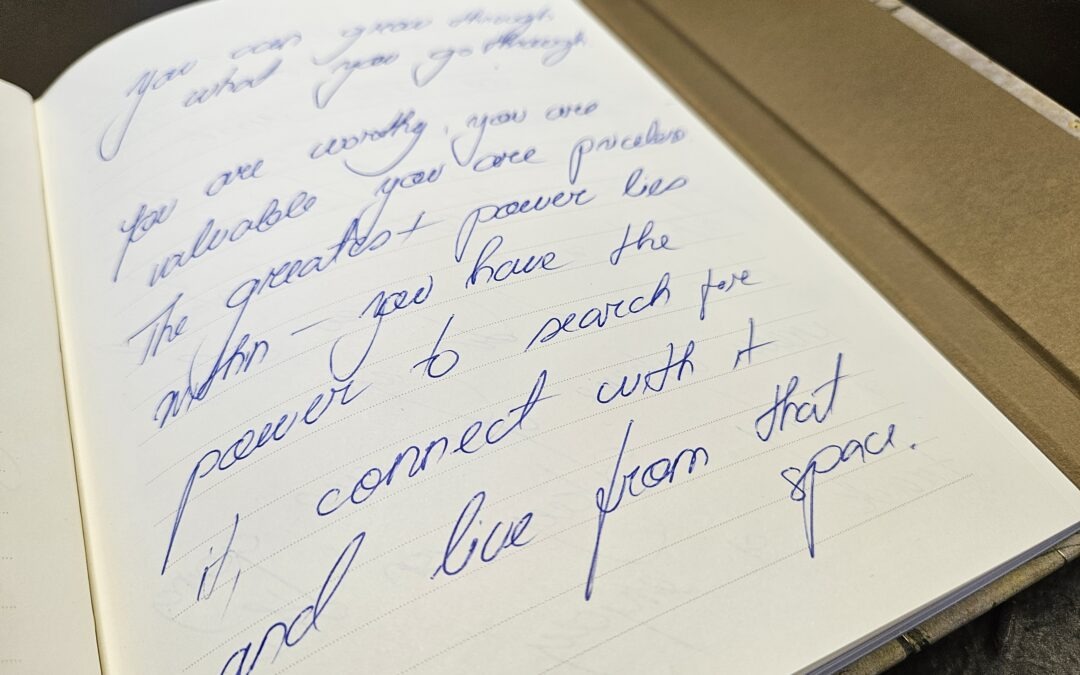 you can grow through
what you go through
You are worthy, you are
valuable you are priceless.
The greatest power lies
within – you have the
power to search for
it, connect with it
and live from that
space.